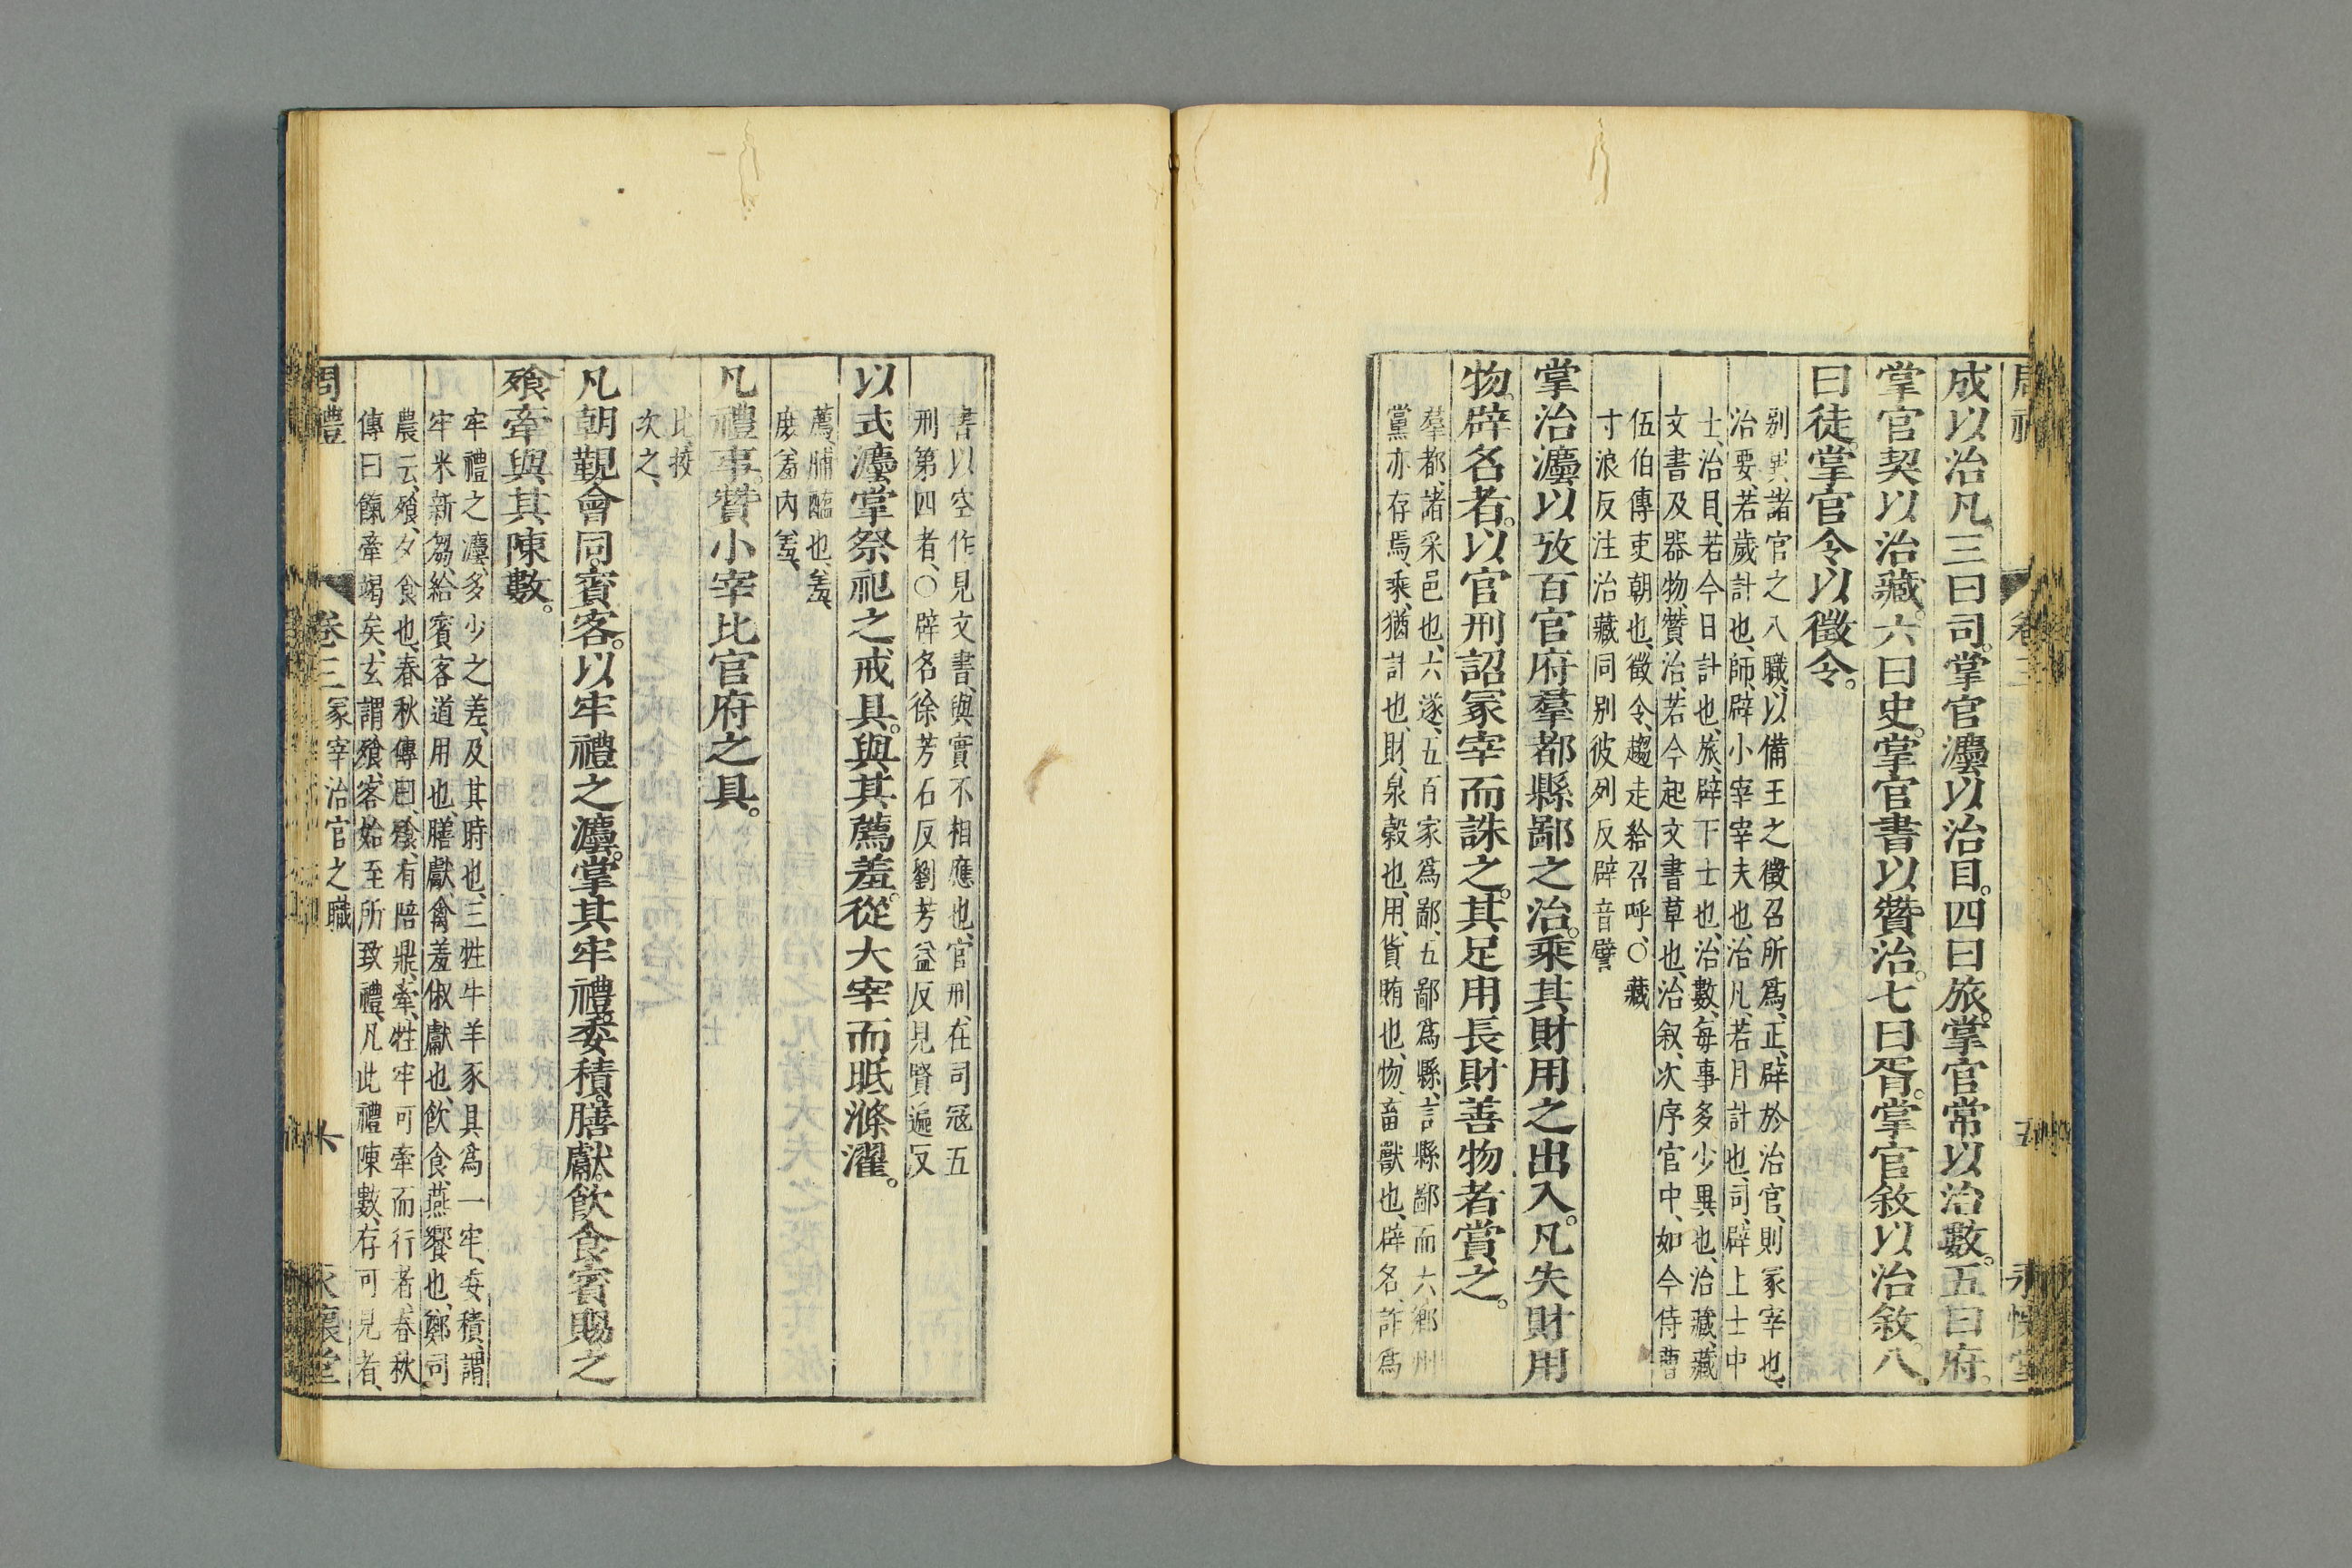 周禮 卷三 五 永懷堂
成以治凡。三曰司。掌官灋以治目。四曰旅。掌官常以治數。五曰府。
掌官契以治藏。六曰史。掌官書以贊治。七曰胥。掌官敘以治敘。八
曰徒。掌官令以徵令。
別異諸官之八職、以備王之徵召所爲、正、辟於治官、則冢宰也、
治要、若歲計也、師、辟小宰宰夫也、治凡、若月計也、司、辟上士中
士、治目、若今日計也、旅、辟下士也、治數、每事多少異也、治藏、藏
文書及器物、贊治、若今起文書草也、治叙、次序官中、如今侍曹
伍伯傳吏朝也、徵令、趨走給召呼、○藏
才浪反注治藏同別彼列反辟音譬
掌治灋以攷百官府羣都縣鄙之治。乘其財用之出入。凡失財用
物。辟名者。以官刑詔冢宰而誅之。其足用長財善物者賞之。
羣都、諸采邑也、六遂、五百家爲鄙、五鄙爲縣、言縣鄙而六鄉州
黨亦存焉、乘、猶計也、財、泉榖也、用、貨賄也、物、畜獸也、辟名、詐爲
書以空作見文書、與實不相應也、官刑、在司宼五
刑第四者、○辟名徐芳石反劉芳益反見賢遍反
以式灋掌祭祀之戒具。與其薦羞。從大宰而眡滌濯。
薦、脯醢也、羞、
庶羞內羞、
凡禮事。贊小宰比官府之具。
比、挍
次之、
凡朝覲會同。賓客。以牢禮之灋。掌其牢禮。委積。膳獻。飮食。賓賜之
飧牽。與其陳數。
牢禮之灋、多少之差、及其時也、三牲牛羊豕具爲一牢、委積、謂
牢米薪芻、給賓客道用也、膳獻、禽羞俶獻也、飮食、燕饗也、鄭司
農云、飧、夕食也、春秋傳曰、飧、有陪鼎、牽、牲牢可牽而行者、春秋
傳曰餼牽竭矣、玄謂飧、客始至所致禮、凡此禮陳數、存可見者、
周禮 卷三 冢宰治官之職 六 永懷堂